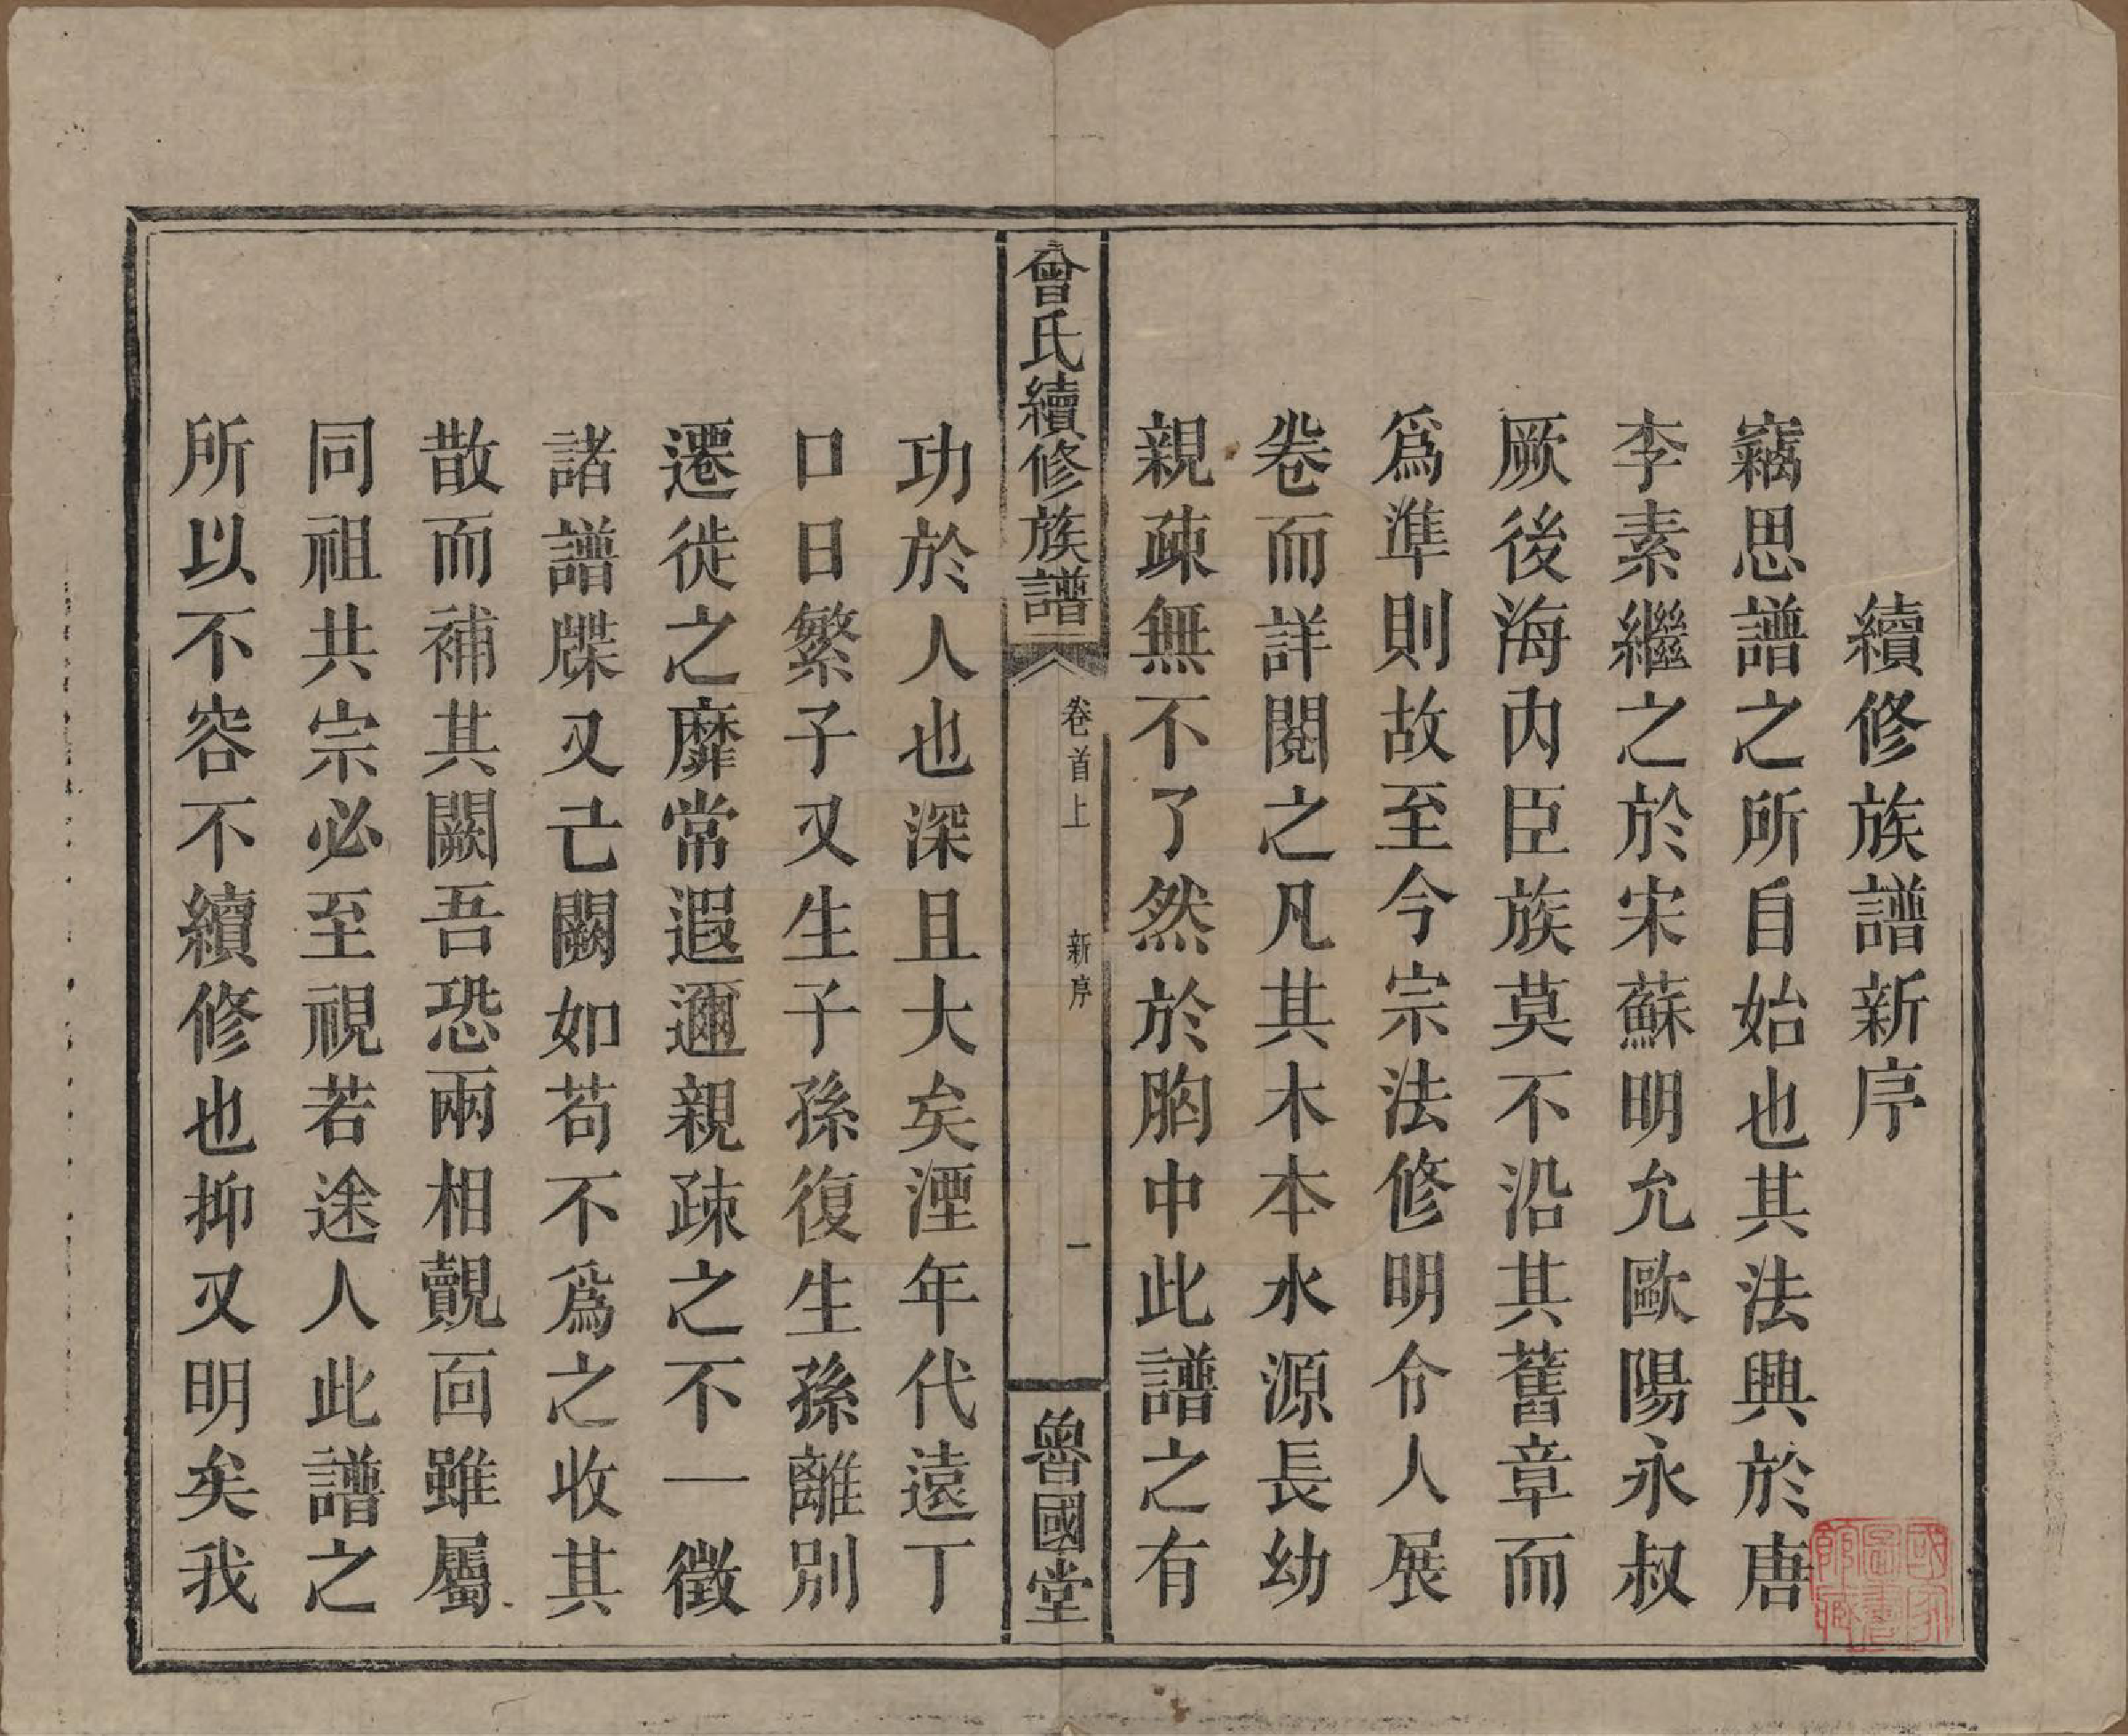 續修族譜新序
竊思譜之所自始也其法興於唐
李素繼之於宋蘇明允歐陽永叔
厥後海內臣族莫不沿其舊章而
爲準則故至今宗法修明令人展
卷而詳閱之凡其木本水源長幼
親疎無不了然於胸中此譜之有
曾氏續修族譜
卷首上
新序
一
魯國堂
功於人也深且大矣湮年代遠丁
口日繁子又生子孫復生孫離別
遷徙之靡常遐邇親疎之不一徵
諸譜牒又已闕如苟不爲之收其
散而補其闕吾恐兩相覿面雖屬
同祖共宗必至視若途人此譜之
所以不容不續修也抑又明矣我
國家圖書館藏